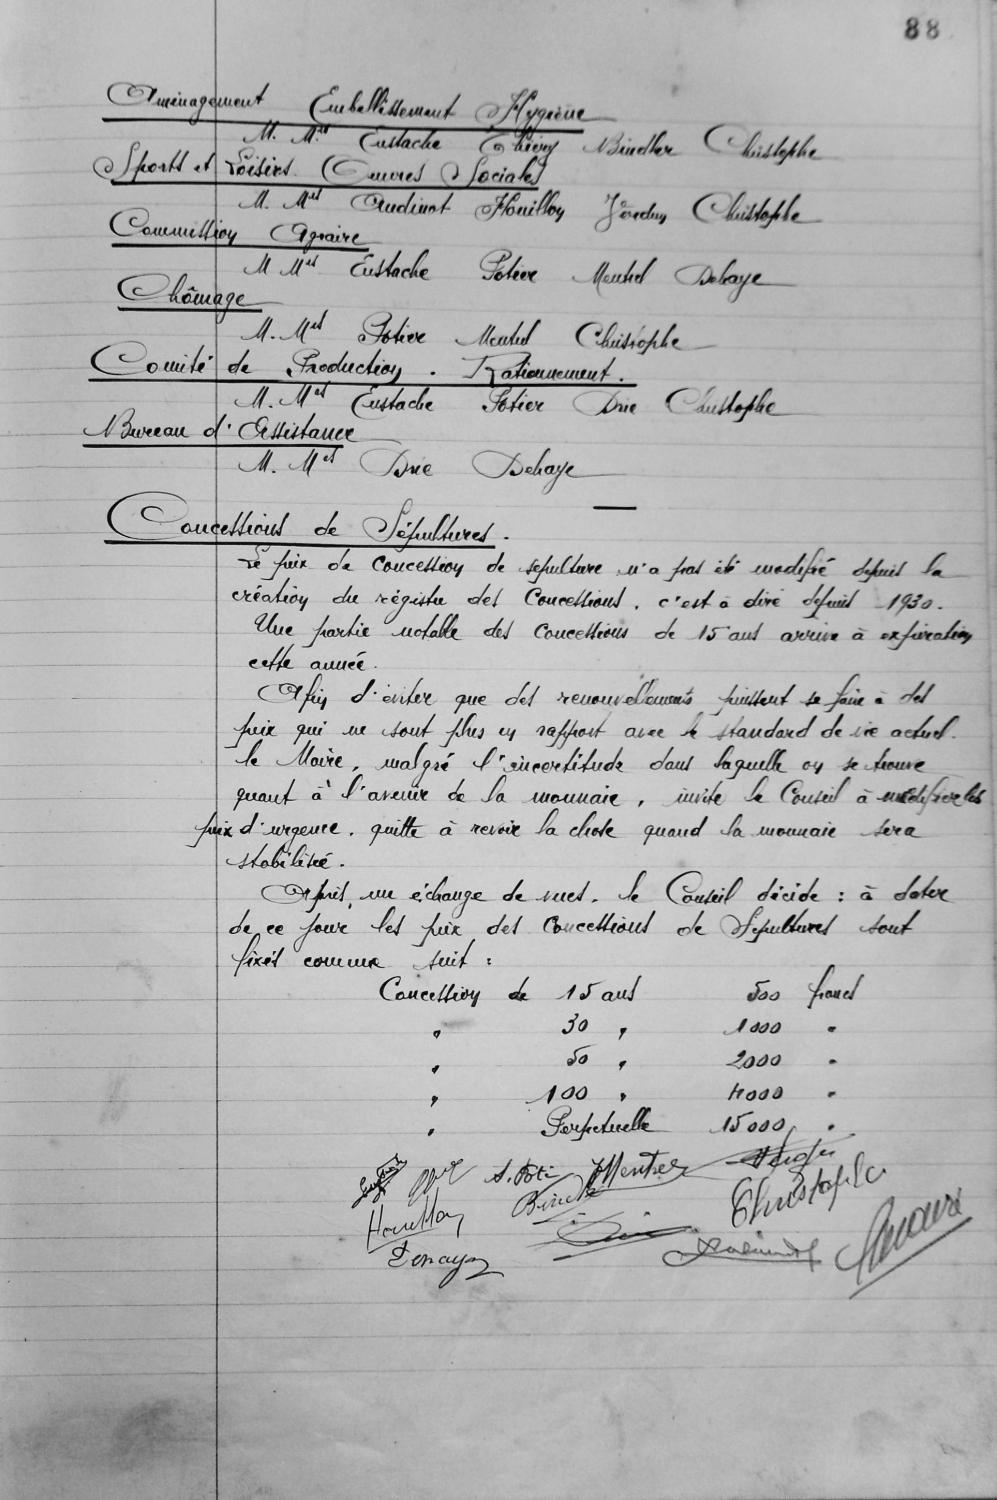 88
Aménagement Embellissement Hygiène
M. Mrs Eustache Thiéry Bindler Christophe
Sports et Loisirs (Œuvres Sociales)
M. Mrs Audinot Houillon Christophe
Commission Agraire
M Mrs Eustache Potier Mentel Dehaye
Chômage
M. Mrs Potier Mentel Christophe
Comité de Production. Rationnement.
M. Mrs Eustache Potier Drie Christophe
Bureau d'Assistance
M. Mrs Drie Dehaye
Concessions de Sépultures.
Le prix de concession de sépulture n'a pas été modifié depuis la
création du régistre des Concessions, c'est à dire depuis 1930.
Une partie notable des concessions de 15 ans arrive à expiration
cette année.
Afin d'éviter que des renouvellements puissent se faire à des
prix qui ne sont plus en rapport avec le standard de vie actuel.
le Maire, malgré l'incertitude dans laquelle on se trouve
quant à l'avenir de la monnaie, invite le Conseil à modifier les
prix d'urgence, quitte à revoir la chose quand la monnaie sera
stabilisée.
Après un échange de vues, le Conseil décide : à dater
de ce jour les prix des Concessions de Sépultures sont
fixés comme suit :
Concession de 15 ans 500 francs
" 30 " 1000 "
" 50 " 2000 "
" 100 " 4000 "
" Perpetuelle 15000 "
Christophe
Houillon